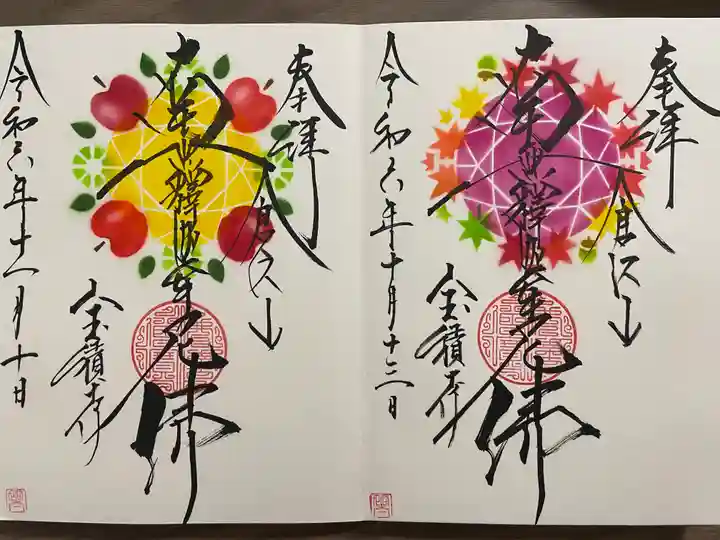 奉拝
南無釋迦牟尼佛
宝積寺
令和六年十月十三日
奉拝
南無釋迦牟尼佛
宝積寺
令和六年十一月十日